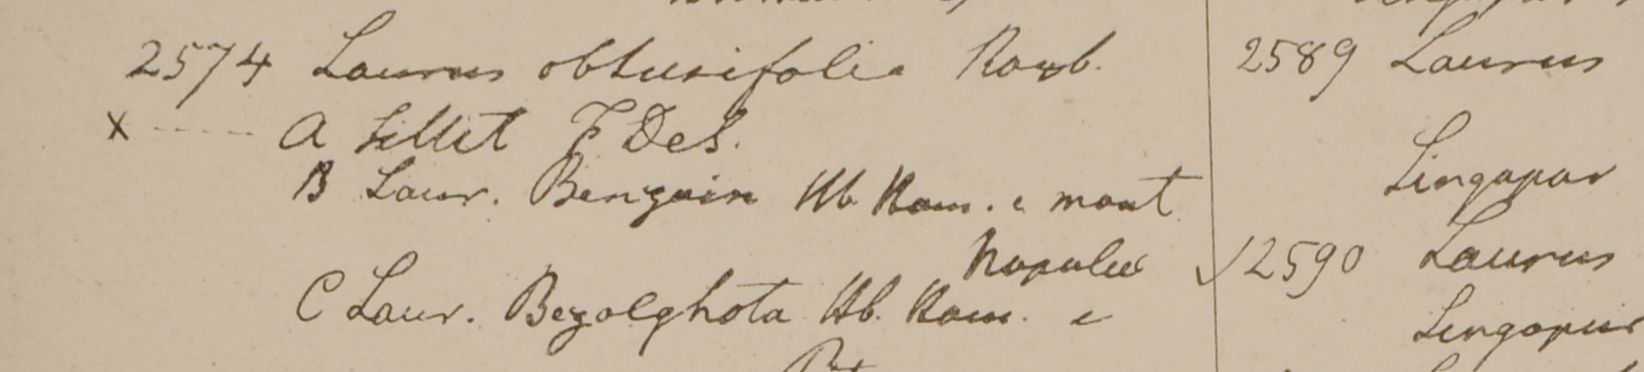 2574 Laurus obtusifolia Roxb.
x ----- a Sillet F. De S.
B Laur. Benzoin Hb. Ham. e mont
Napaliæ
C Laur. Bezolghota Hb. Ham. e
2589 Laurus
Singapur
✓ 2590 Laurus
Singapur